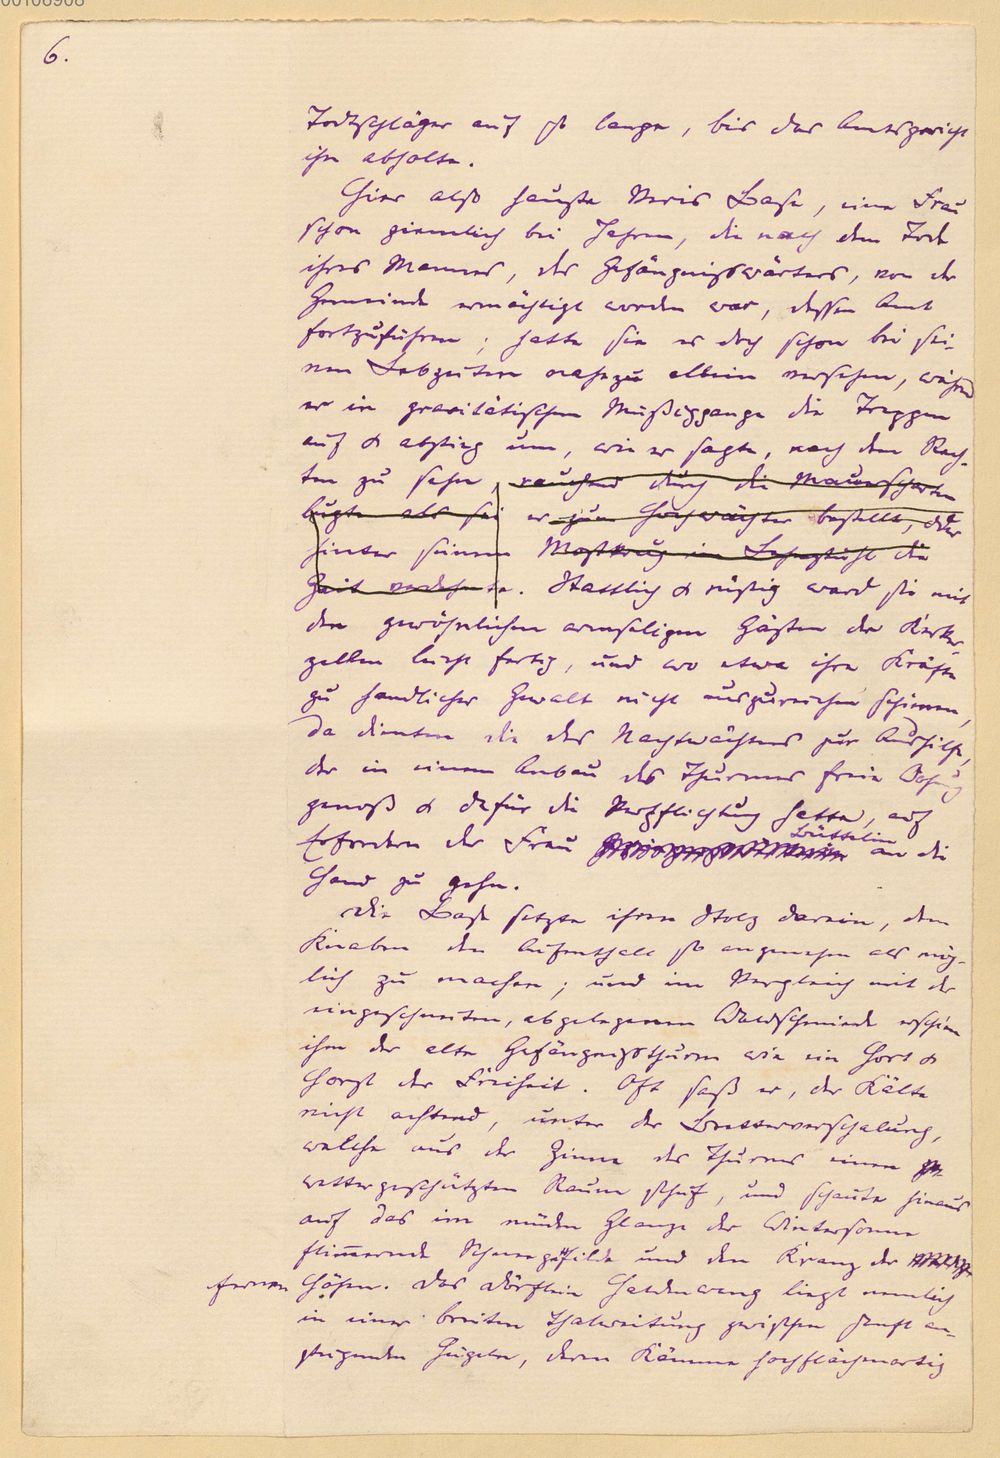 00106908
6.
Todtschläger auf so lange, bis das Amtsgericht
ihn abholte.
Hier also hauste Veris Base, eine Frau
schon ziemlich bei Jahren, die nach dem Tode
ihres Mannes, des Gefängnißwärters, von der
Gemeinde ermächtigt worden war, dessen Amt
fortzuführen; hatte sie es doch schon bei sei-
nen Lebzeiten nahezu allein versehen, während
er in gravitätischem Müßiggange die Treppen
auf & abstieg um, wie er sagte, nach dem Rech-
ten zu sehen, rauchend durch die Mauerscharten
lugte als sei er zum Hochwächter bestellt, oder
hinter seinem Mostkrug im Lehnstuhl die
Zeit verdehnte. Stattlich & rüstig ward sie mit
den gewöhnlichen armseligen Gästen der Kerker-
zellen leicht fertig, und wo etwa ihre Kräfte
zu handlicher Gewalt nicht auszureichen schienen,
da dienten die des Nachtwächters zur Aushilfe,
der in einem Anbau des Thurmes freie Behausung
genoß & dafür die Verpflichtung hatte, auf
Erfordern der Frau Büttelin an die
Hand zu gehn.
Die Base setzte ihren Stolz darein, dem
Knaben den Aufenthalt so angenehm als mög-
lich zu machen; und im Vergleich mit der
eingeschneiten, abgelegenen Waldschmiede erschien
ihm der alte Gefängnißthurm wie ein Hort &
Horst der Freiheit. Oft saß er, der Kälte
nicht achtend, unter der Bretterverschalung,
welche aus der Zinne des Thurmes einen
wettergeschützten Raum schuf, und schaute hinaus
auf das im müden Glanze der Wintersonne
flimmernde Schneegefilde und den Kranz der
fernen Höhen. Das Dörflein Haldenwang liegt nemlich
in einer breiten Thalweitung zwischen sanft an-
steigenden Hügeln, deren Kämme hochflächenartig